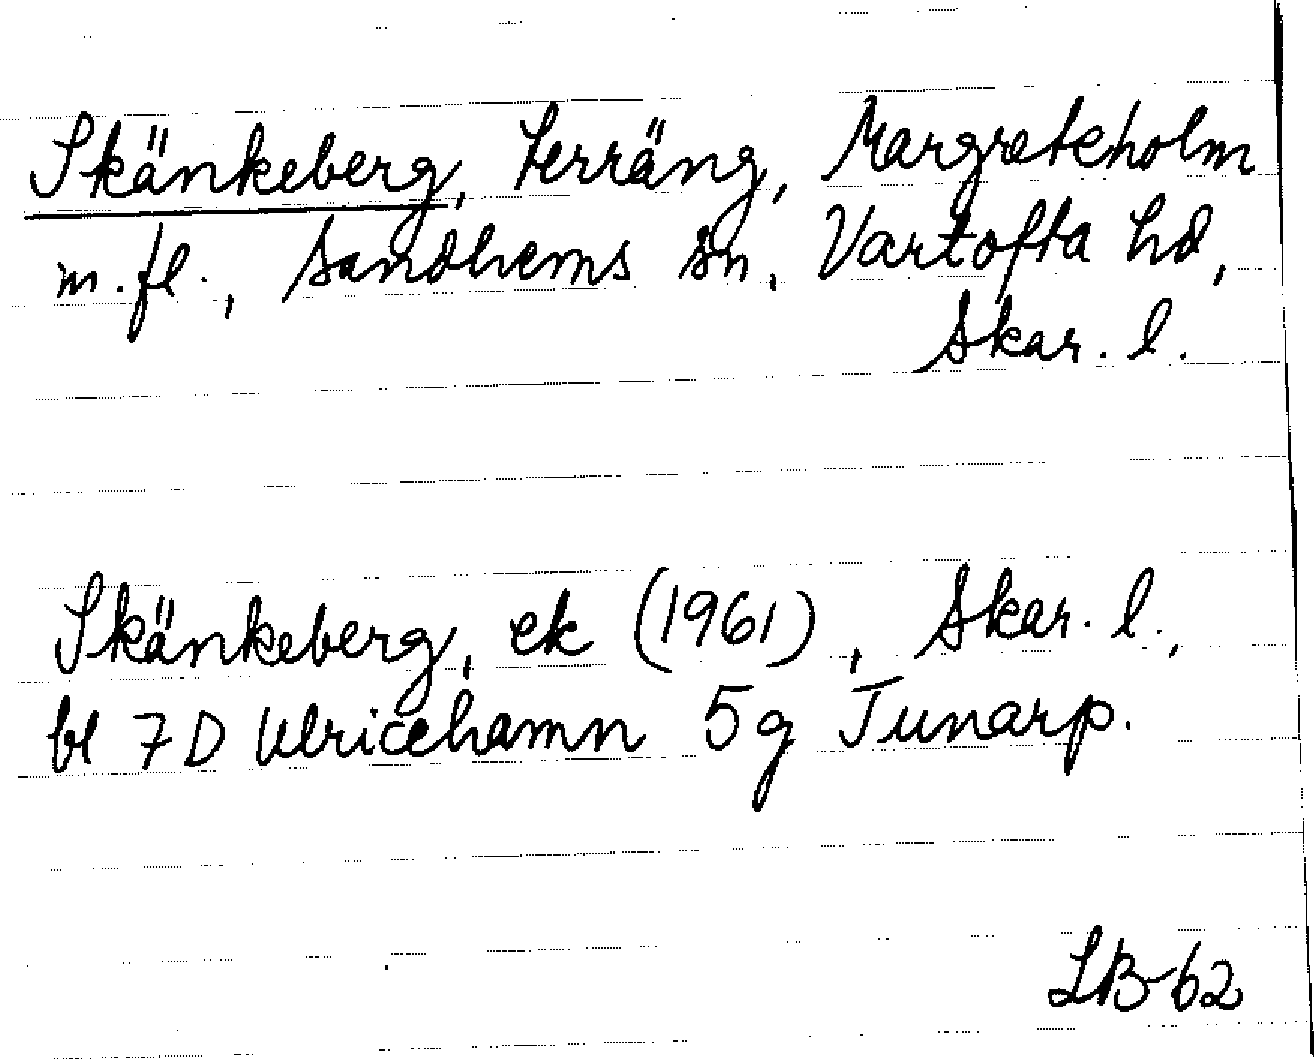 Skänkeberg, terräng, Margreteholm
m.fl., Sandhems sn, Vartofta hd,
Skar. l.
Skänkeberg, ek (1961), Skar. l.,
bl 7D Ulricehamn 5g Tunarp.
LB-62